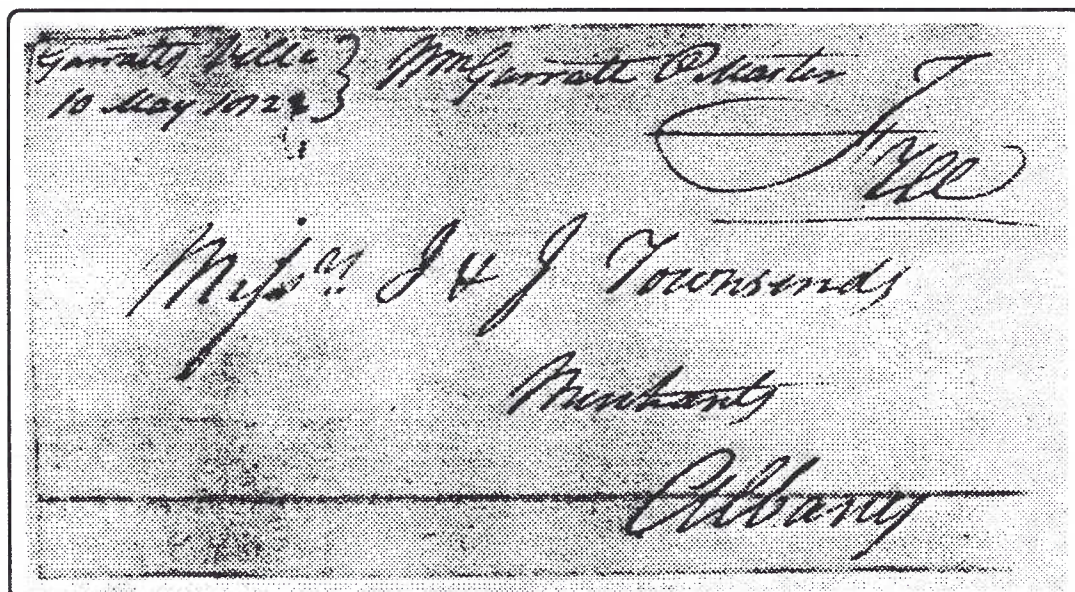 Garratts Ville
10 May 182
Wm Garratt P Master
Free
Messrs I & J Townsends
Merchants
Albany